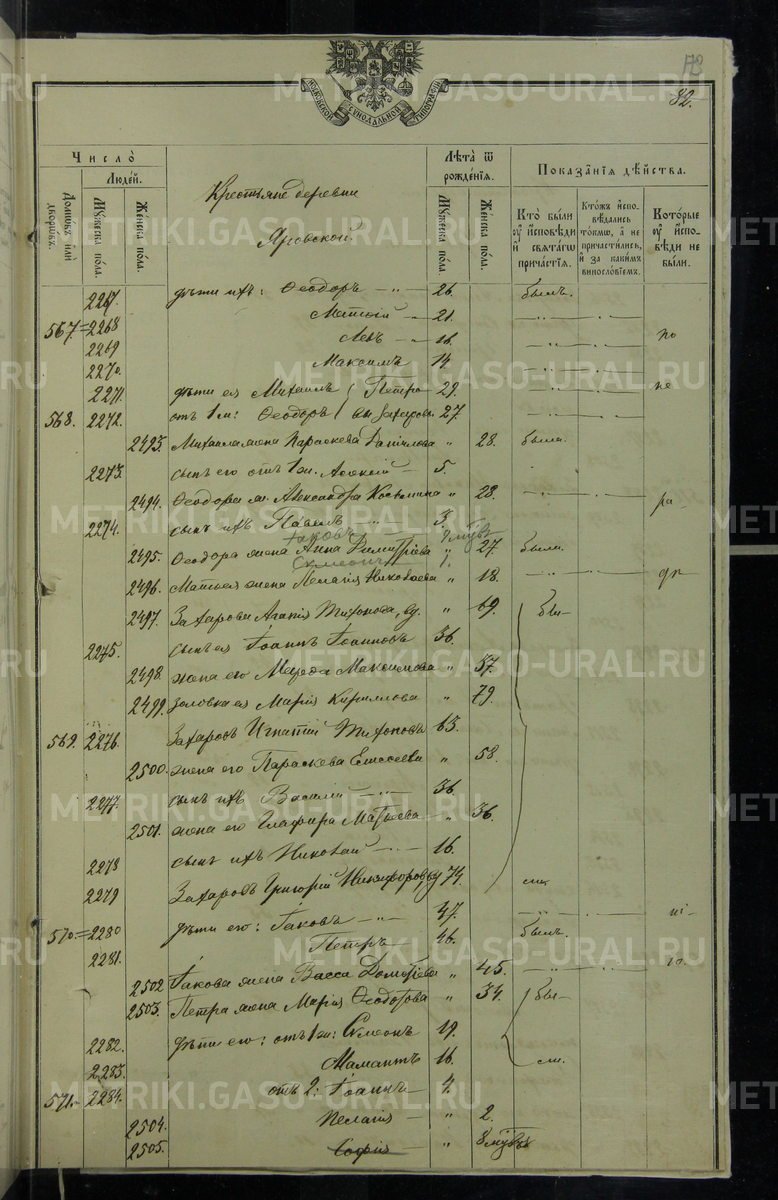 172
82.
МОСКОВСКОЙ СѴНОДАЛЬНОЙ ТИПОГРАФІИ
Число̀
Людей.
Домѡвъ или дворѡвъ.
Мꙋжеска по́ла.
Же́нска по́ла.
Крестьяне деревни
Яровской.
Лѣта̀ ѿ рожде́нїѧ.
Мꙋжеска по́ла.
Же́нска по́ла.
Показа́нїѧ дѣ́йства.
Кто̀ бы́ли ᲂу҆ и҆сповѣди и҆ свѧта́гѡ прича́стїѧ.
Кто́жъ и҆сповѣдались то́кмѡ, а҆ не причасти́лись, и҆ за каки́мъ винословїемъ.
Кото́рые ᲂу҆ и҆споведи не бы́ли.
2267. дѣти ихъ: Ѳеодоръ — „ — 26. былъ.
567.=2268 Матѳій — „ 21. — „ —
2269 Левъ — „ 16. — „ —
2270. Максимъ 14. — „ —
2271. дѣти ея Михаилъ Петро 29. — „ —
568. 2272. отъ 1 м: Ѳеодоръ вы Захаровы 27. — „ —
2493. Михаила жена Параскева Даніилова „ 28. была.
2273. сынъ его отъ 1 ж. Алексій — 5.
2494. Ѳеодора ж. Александра Космина „ 28. — „ —
2274. сынъ ихъ Павелъ — „ — 3
Іаковъ
2495. Ѳеодора жена Анна Димитріева „ 27. были.
Сѵмеонъ 1.
2496. Матѳея жена Пелагія Николаева „ 18. — „ —
2497. Захарова Агапія Тихонова, вд. „ 69. бы—
2275. сынъ ея Іоаннъ Іоанновъ 36.
2498. жена его Мавра Максимова „ 37.
2499. золовка ея Марія Кириллова „ 79.
569. 2276. Захаровъ Игнатій Тихоновъ 63.
2500. жена его Параскева Елисеева „ 58.
2277. сынъ ихъ Василій — „ — 36.
2501. жена его Глафира Матѳеева „ 36.
2278 сынъ ихъ Николай — „ — 16.
2279 Захаровъ Григорій Никифоров, вд 74. сш.
570.=2280 дѣти его: Іаковъ — „ — 47. — „ —
2281. Петръ 46. былъ.
2502 Іакова жена Васса Дометіева „ 45. — „ —
2503. Петра жена Марія Ѳеодорова „ 34. бы—
2282. дѣти его: отъ 1 ж: Сѵмеонъ 19.
2283. Мамантъ 16. сш.
571.- 2284. отъ 2: Іоаннъ — 4.
2504. Пелагія — „ 2.
2505. Софія — „ 8 мцвъ
METRIKI.GASO-URAL.RU